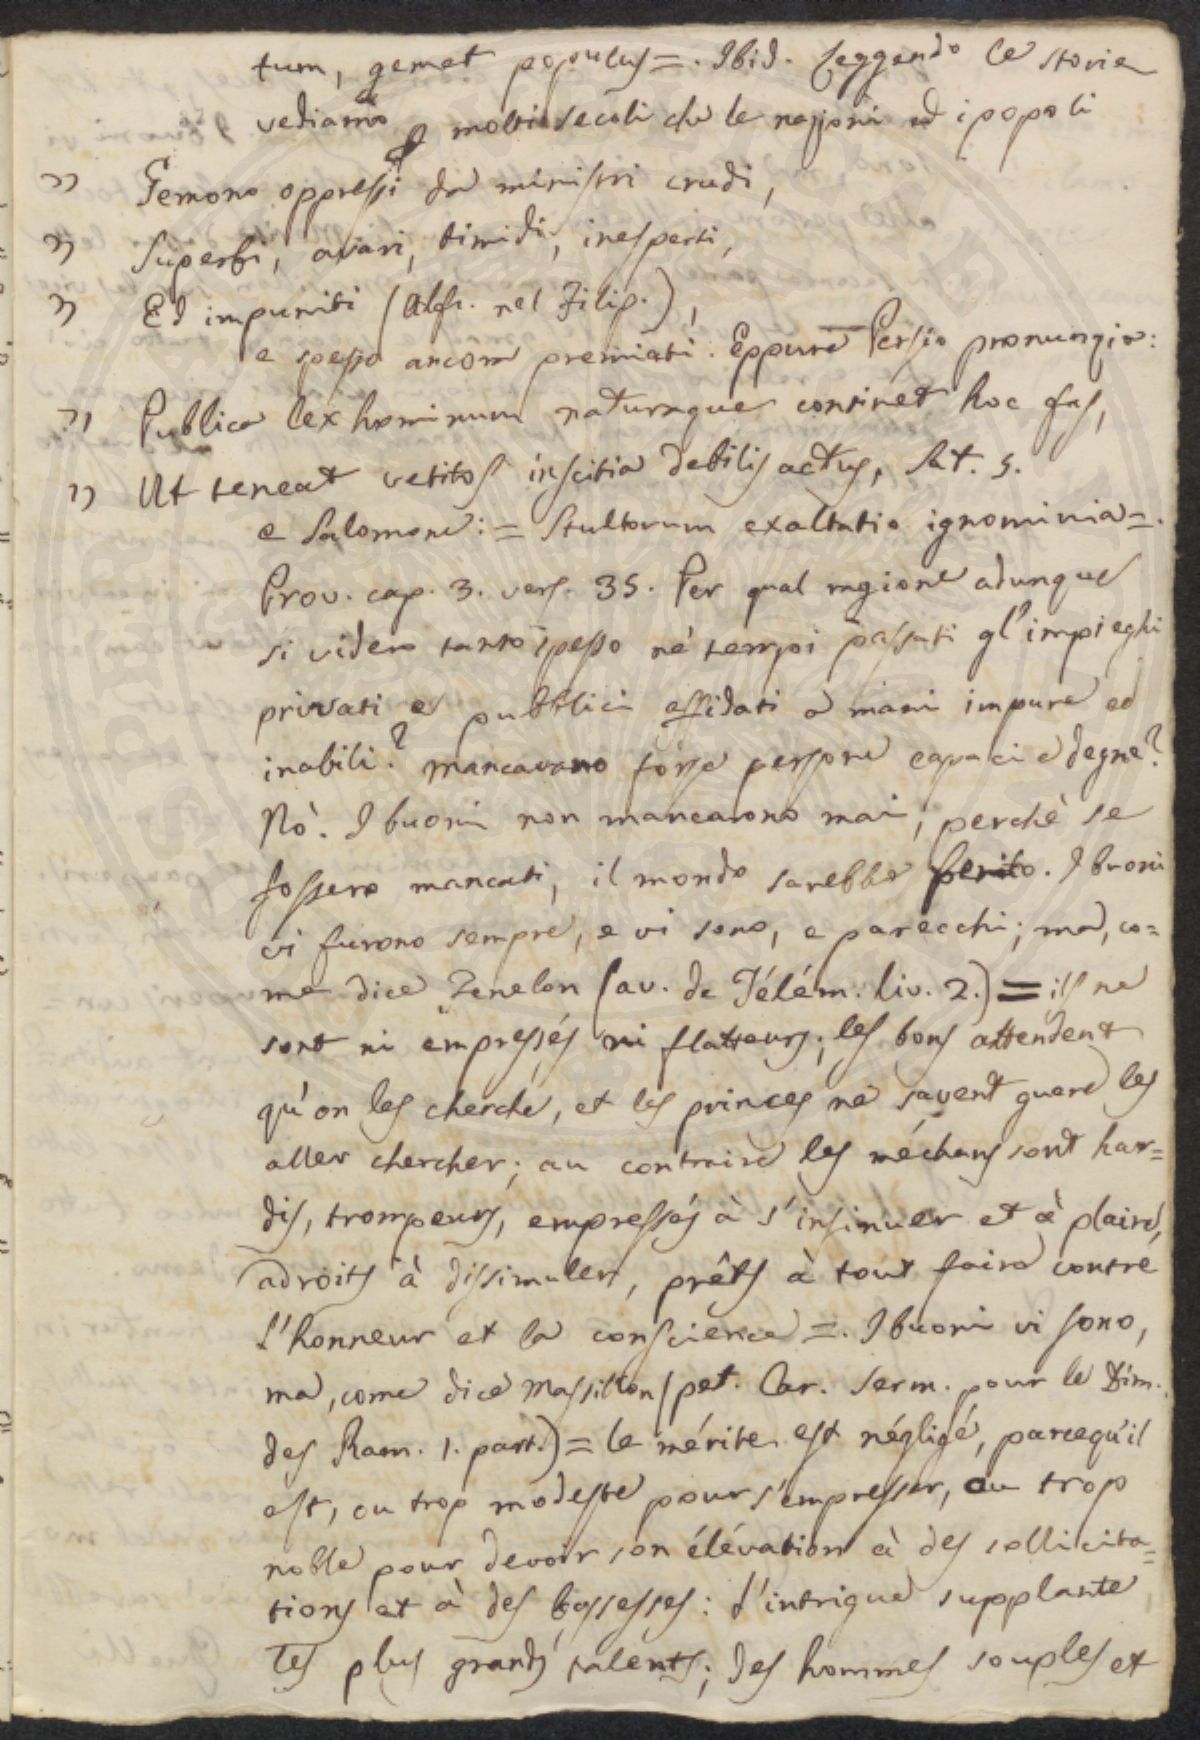 tum, gemet populus=. Ibid. Leggendo le storie
vediamo p molti secoli che le nazioni ed i popoli
" Gemono oppressi da ministri crudi,
" Superbi, avari, timidi, inesperti,
" Ed impuniti (Alfi. nel Filip.),
e spesso ancora premiati. Eppure Persio pronunzia:
" Publica lex hominum naturaque continet hoc fas,
" Ut teneat vetitos inscitia debilis actus, Sat. 5.
e Salomone:= Stultorum exaltatio ignominia=.
Prov. cap. 3. vers. 35. Per qual ragione adunque
si videro tanto spesso ne' tempi passati gl'impieghi
privati e pubblici affidati a mani impure ed
inabili? mancavano forse persone capaci e degne?
Nò. I buoni non mancarono mai, perchè se
fossero mancati, il mondo sarebbe perito. I buoni
vi furono sempre, e vi sono, e parecchi; ma, co=
me dice Fenelon (av. de Télém. liv. 2.)= ils ne
sont ni empressés ni flatteurs; les bons attendent
qu'on les cherche, et les princes ne savent guere les
aller chercher; au contraire les méchans sont har=
dis, trompeurs, empressés à s'insinuer et à plaire,
adroits à dissimuler, prêts à tout faire contre
l'honneur et la conscience=. I buoni vi sono,
ma, come dice Massillon (pet. Car. Serm. pour le Dim.
des Ram. 1. part.)= le mérite est négligé, parcequ'il
est, ou trop modeste pour s'empresser, ou trop
noble pour devoir son élévation à des sollicita=
tions et à des bassesses: l'intrigue supplante
les plus grands talents; des hommes souples et